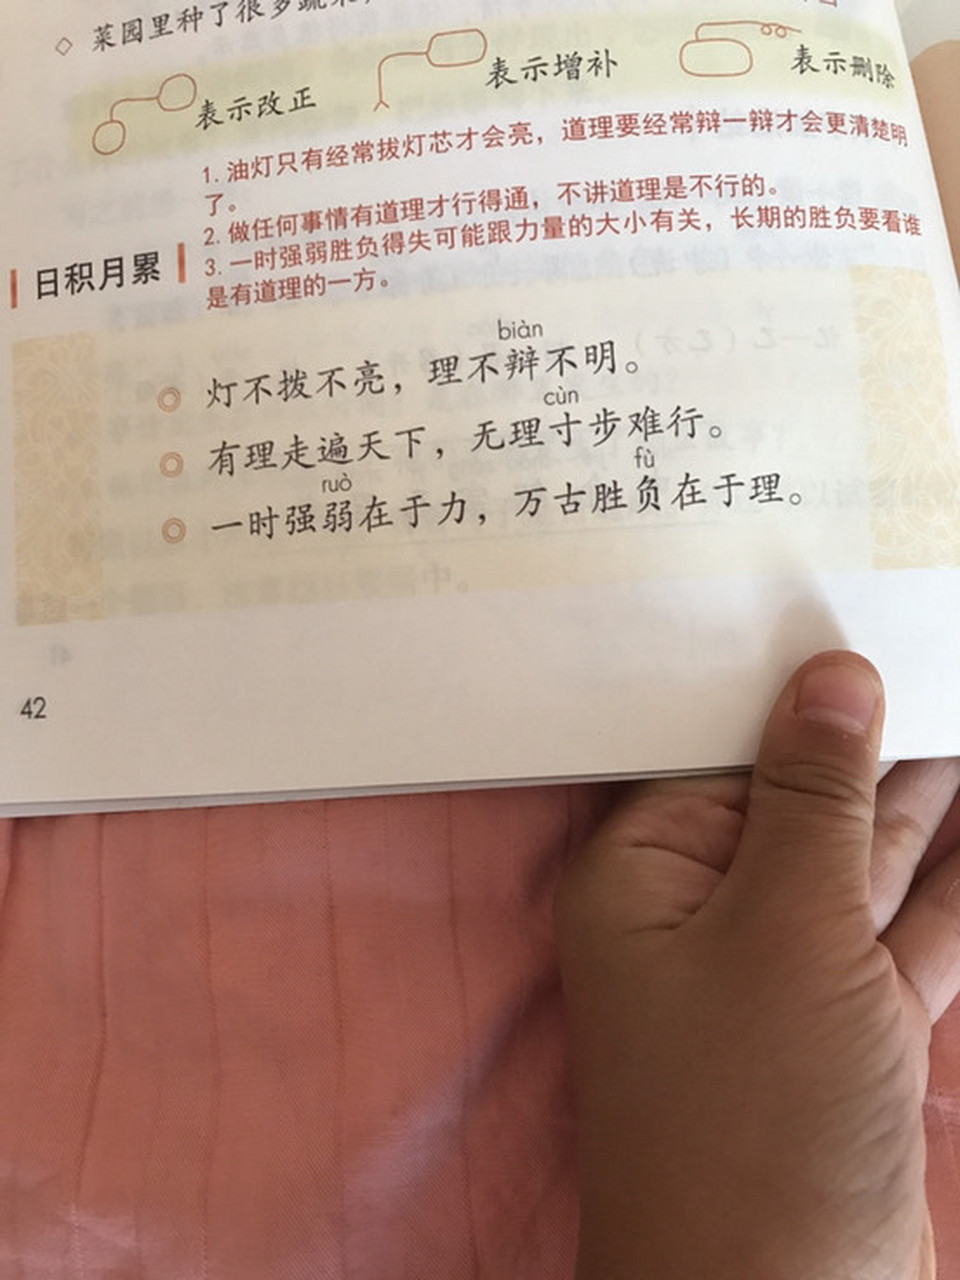 ◇ 菜园里种了很多蔬菜，
表示改正 表示增补 表示删除
1. 油灯只有经常拔灯芯才会亮，道理要经常辩一辩才会更清楚明
了。
2. 做任何事情有道理才行得通，不讲道理是不行的。
3. 一时强弱胜负得失可能跟力量的大小有关，长期的胜负要看谁
是有道理的一方。
日积月累
biàn
灯不拨不亮，理不辩不明。
cùn
有理走遍天下，无理寸步难行。
ruò fù
一时强弱在于力，万古胜负在于理。
42